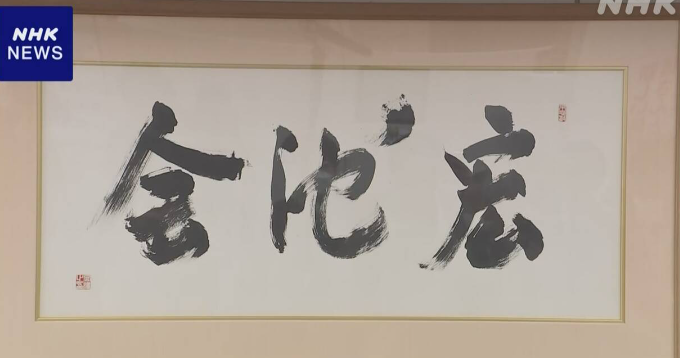 NHK
NEWS
NHK
宏池会